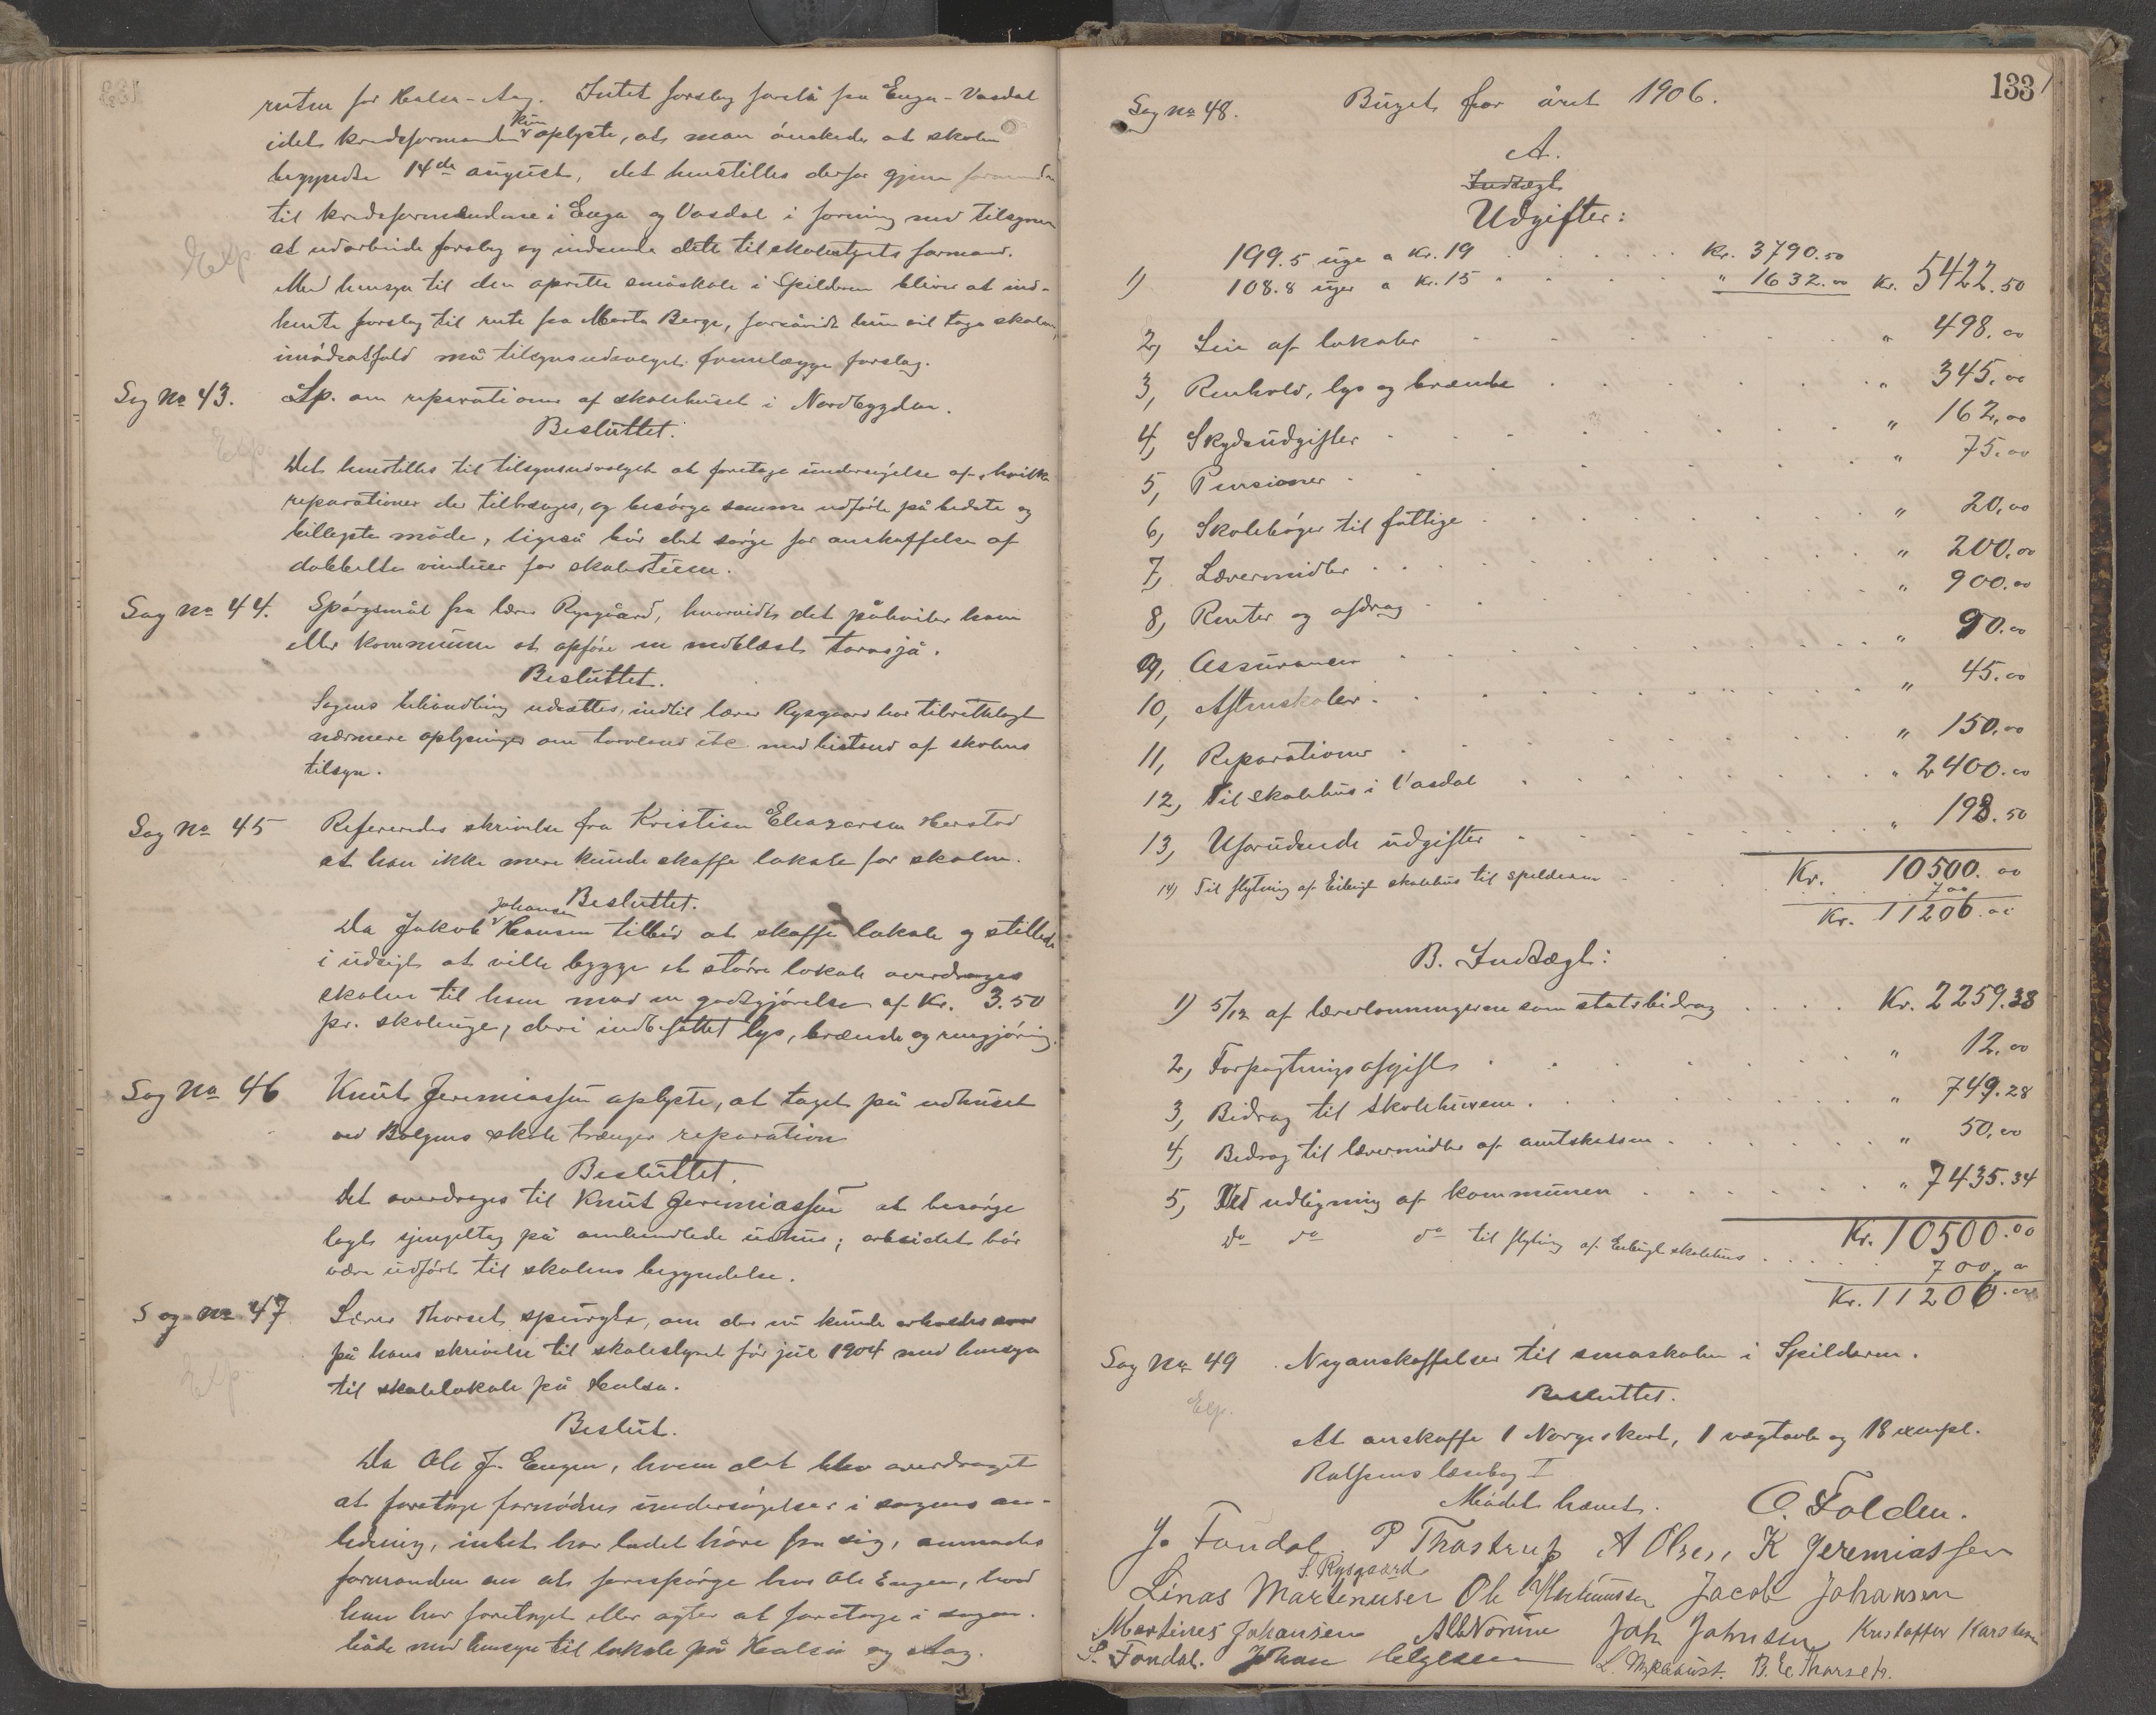 ruten for Halsa - Aag. Intet forslag forelå fra Enga - Vasdal
idet kredsformanden kun oplyste, at man ønskede at skolen
begyndte 14de august, det henstilles derfor gjen formanden
til kredsformændene i Enga og Vasdal i forening med tilsynet
at udarbeide forslag og indsende dette til skolestyrets formand.
Exp.
Med hensyn til den oprettede småskole i Spilderen bliver at ind-
hente forslag til rute fra Marta Berge, forsåvidt hun vil tage skolen,
imodsatfald må tilsynsudvalget fremlægge forslag.
Sag No 43. Sp. om reparationer af skolehuset i Nordbygden.
Besluttet.
Exp.
Det henstilles til tilsynsudvalget at foretage undersøgelse af, hvilke
reparationer der tiltrænges, og besørge samme udførte på bedste og
billigste måde, ligeså bør det sørge for anskaffelse af
dobbelte vinduer for skolestuen.
Sag no 44. Spørgsmål fra lærer Rysgaard, hvorvidt det påhviler ham
eller kommunen at opføre en nedblæst torvsjå.
Besluttet.
Sagens behandling udsættes, indtil lærer Rysgaard har tilveiebragt
nærmere oplysninger om torvland etc. med bistand af skolens
tilsyn.
Sag No 45 Refereredes skrivelse fra Kristian Eleazarsen Herstad
at han ikke mere kunde skaffe lokale for skolen.
Besluttet.
Da Jakob Johansen Hansen tilbød at skaffe lokale og stillede
i udsigt at ville bygge et større lokale overdrages
skolen til ham mod en godtgjørelse af Kr. 3.50
pr. skoleuge, deri indbefattet lys, brænde og rengjøring.
Sag No 46 Knut Jeremiassen oplyste, at taget på udhuset
ved Bolgens skole trænger reparation
Besluttet.
Det overdrages til Knut Jeremiassen at besørge
lagt tag på omhandlede udhus; arbeidet bør
være udført til skolens begyndelse.
Sag no 47 Lærer Thorset spurgte, om der nu kunde erholdes svar
på hans skrivelse til skolestyret før jul 1904 med hensyn
Exp.
til skolelokale på Halsa.
Beslut.
Da Ole J. Engen, hvem det blev overdraget
at foretage fornødne undersøgelser i sagens an-
ledning, intet har ladet høre fra sig, anmodes
formanden om at forespørge hos Ole Engen, hvad
han har foretaget eller agter at foretage i sagen.
både med hensyn til lokale på Halsa og Aag.
133
Sag no 48. Buget for året 1906.
A.
Indtægt
Udgifter:
199.5 uge a Kr. 19 Kr. 3790.50
1) 108.8 uger a Kr. 15 " 1632.00 Kr. 5422.50
2, Leie af lokaler " 498.00
3, Renhold, lys og brænde " 345.00
4, Skydsudgifter " 162.00
5, Pensioner " 75.00
6, Skolebøger til fattige " 20.00
7, Læremidler " 200.00
8, Renter og afdrag " 900.00
9, Assurancer " 90.00
10, Aftenskoler " 45.00
11, Reparationer " 150.00
12, Til skolehus i Vasdal " 2400.00
13, Uforudseede udgifter " 192.50
Kr. 10500.00
14) Til flytning af skolehus til Spilderen 700
Kr. 11200.00
B. Indtægt:
1) 5/12 af lærerlønningerne som statsbidrag Kr. 2259.38
2, Forpagtningsafgift " 12.00
3, Bidrag til skolehusene " 749.28
4, Bidrag til læremidler af amtskassen " 50.00
5, Ved udligning af kommunen " 7435.34
Kr. 10500.00
do do do til flytning af skolehus 700.00
Kr. 11200.00
Sag No 49 Nyanskaffelser til småskolen i Spilderen.
Besluttet.
Exp.
At anskaffe 1 Norgeskart, 1 vægtavle og 18 exempl.
Rolfsens læsebog I
Mødet hævet. O. Folden.
J. Fondal P Thastrup A Olsen K Jeremiassen
S. Rysgaard
Linas Martenusen Ole Jacob Johansen
Martines Johansen Alb Norum Joh Johnsen Kristoffer Karstensen
S. Fondal. Johan Helgesen L. Myklebust. B. E. Thorset.